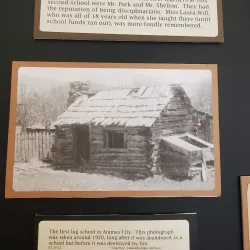 second school were Mr. Park and Mr. Shelton. They had
the reputation of being disciplinarians. Miss Laura Will,
who was all of 18 years old when she taught there (until
school funds ran out), was more fondly remembered.
The first log school in Animas City. This photograph
was taken around 1920, long after it was abandoned as a
school but before it was destroyed by fire.